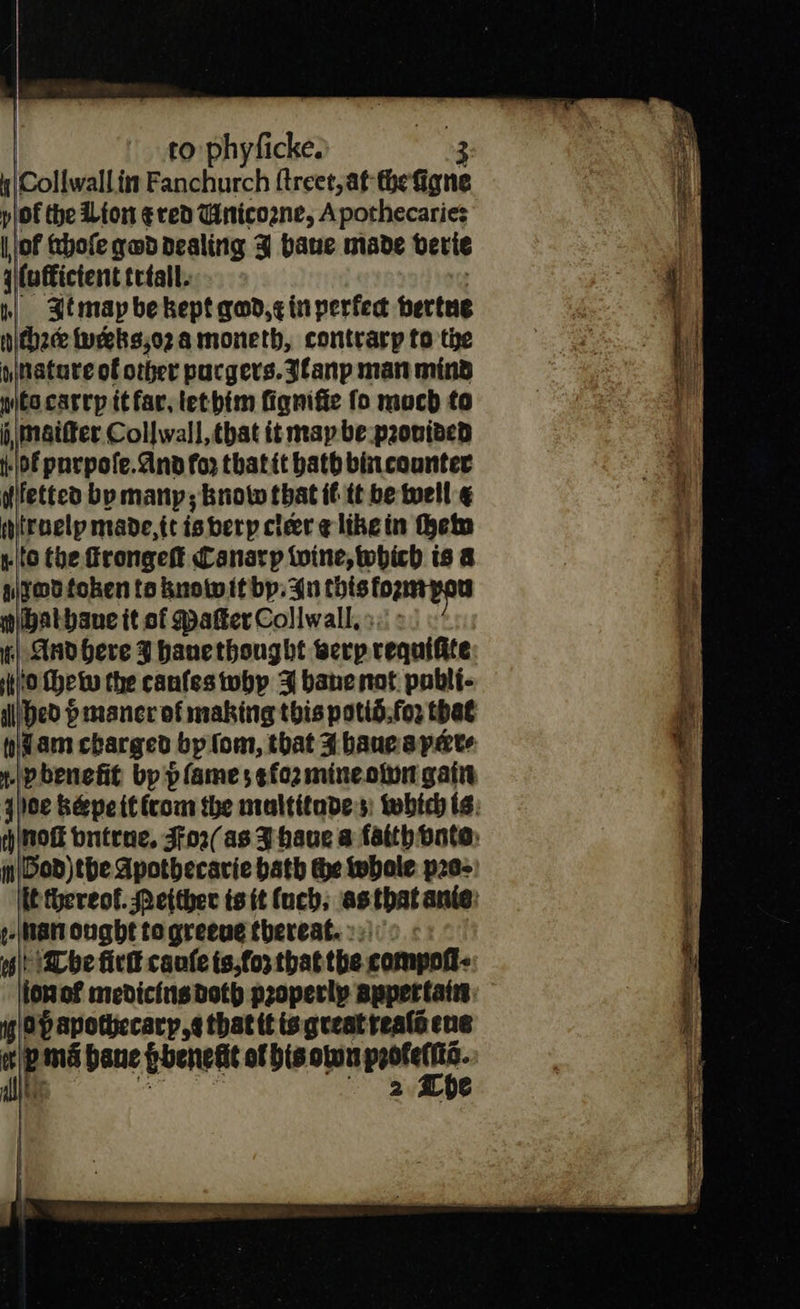 to phyſicke. 3
Collwall in Fanchurch ſtreet, at the ſigne
of the Lion & red Unicorne, Apothecaries
of whoſe good dealing I haue made verie
ſufficient triall.
It may be kept good, & in perfect vertue
thrée wéeks, or a moneth, contrary to the
nature of other purgers. If any man mind
to carry it far, let him ſignifie ſo much to
maiſter Collwall, that it may be prouided
of purpoſe. And for that it hath bin counter
fetted by many, know that if it be well &
truely made, it is very cléer & like in ſhew
to the ſtrongeſt Canary wine, which is a
good token to know it by. In this form you
ſhal haue it of Maſter Collwall.
And here I haue thought very requiſite
to ſhew the cauſes why I haue not publi-
ſhed þͤ maner of making this potiõ, for that
I am charged by ſom, that I haue a
benefit by þͤ ſame, & for mine own gain
kéepe it from the multitude, which is
moſt vntrue. For (as I haue a faith vnto
God) the Apothecarie hath the whole pro-
fit thereof. Neither is it ſuch, as that anie
man ought to greeue thereat.
The firſt cauſe is, for that the compoſi-
tion of medicins doth properly appertain
to þͤ apothecary, & that it is great reasõ eue
ry mã haue þͤ benefit of his own profeſſiõ.
2 The